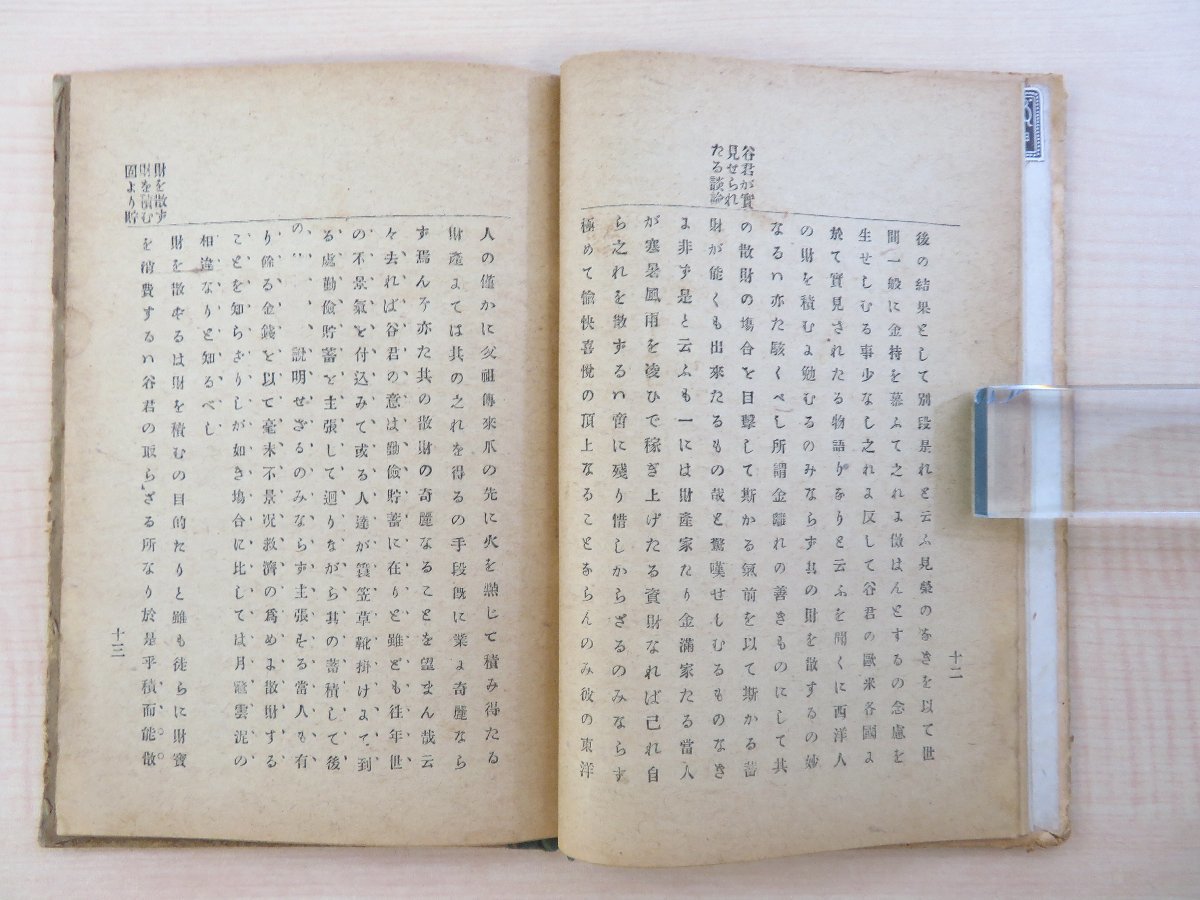 十二
谷君が實
見せられ
たる談論
後の結果として別段是れと云ふ見榮のなきを以て世
間一般に金持を慕ふて之れに倣はんとするの念慮を
生せしむる事少なし之れに反して谷君の歐米各國に
於て實見されたる物語りなりと云ふを聞くに西洋人
の財を積むに勉むるのみならず其の財を散するの妙
なるハ亦た駭くべし所謂金離れの善きものにして其
の散財の塲合を目擊して斯かる氣前を以て斯かる蓄
財が能くも出來たるもの哉と驚嘆せしむるものなき
に非ず是と云ふも一には財產家たり金滿家たる當人
が寒暑風雨を凌ひで稼ぎ上げたる資財なれば己れ自
ら之れを散ずるハ啻に殘り惜しからざるのみならす
極めて愉快喜悅の頂上なることならんのみ彼の東洋
人の僅かに父祖傳來爪の先に火を㸃じて積み得たる
財產にては其の之れを得るの手段旣に業に奇麗なら
ず焉んぞ亦た其の散財の奇麗なることを望まん哉云
々去れば谷君の意は勤儉貯蓄に在りと雖ども徃年世
の不景氣を付込みて或る人達が簑笠草靴掛けにて到
る處勤儉貯蓄を主張して迴りながら其の蓄積して後
の 說明せざるのみならす主張する當人も有
り餘る金錢を以て毫末不景况救濟の爲めに散財する
ことを知らざりしが如き塲合に比しては月鼈雲泥の
相違なりと知るべし
財を散ず
財を積む
固より貯
財を散ずるは財を積むの目的たりと雖も徒らに財寶
を消費するハ谷君の取らざる所なり於是乎積而能散
十三